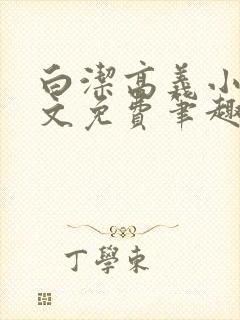 白潔高義小
文免費筆趣
丁學東